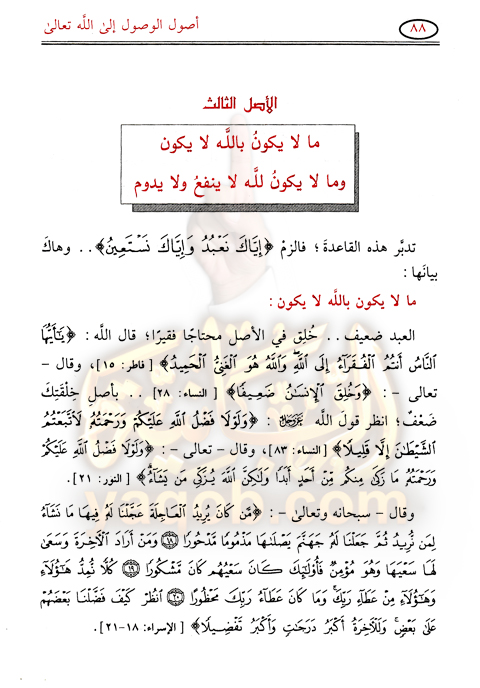 ٨٨
أصول الوصول إلىٰ اللَّه تعالىٰ
الأصل الثالث
ما لا يكونُ باللَّه لا يكون
وما لا يكونُ للَّه لا ينفعُ ولا يدوم
تدبَّر هذه القاعدةَ؛ فالزمْ ﴿إِيَّاكَ نَعْبُدُ وَإِيَّاكَ نَسْتَعِينُ﴾.. وهاكَ
بيانَها:
ما لا يكون بالله لا يكون :
العبد ضعيف.. خُلِق في الأصل محتاجًا فقيرًا؛ قال اللَّه: ﴿يَٰٓأَيُّهَا
النَّاسُ أَنتُمُ الْفُقَرَآءُ إِلَى اللَّهِ وَاللَّهُ هُوَ الْغَنِيُّ الْحَمِيدُ﴾ [فاطر: ١٥]، وقال -
تعالى -: ﴿وَخُلِقَ الْإِنسَٰنُ ضَعِيفًا﴾ [النساء: ٢٨].. بأصلِ خلْقَتِكَ
ضَعْفٌ؛ انظر قولَ اللَّه عَزَّوَجَلَّ: ﴿وَلَوْلَا فَضْلُ اللَّهِ عَلَيْكُمْ وَرَحْمَتُهُۥ لَاتَّبَعْتُمُ
الشَّيْطَٰنَ إِلَّا قَلِيلًا﴾ [النساء: ٨٣]، وقال - تعالى -: ﴿وَلَوْلَا فَضْلُ اللَّهِ عَلَيْكُمْ
وَرَحْمَتُهُۥ مَا زَكَىٰ مِنكُم مِّنْ أَحَدٍ أَبَدًا وَلَٰكِنَّ اللَّهَ يُزَكِّي مَن يَشَآءُ﴾ [النور: ٢١].
وقال - سبحانه وتعالىٰ -: ﴿مَّن كَانَ يُرِيدُ الْعَاجِلَةَ عَجَّلْنَا لَهُۥ فِيهَا مَا نَشَآءُ
لِمَن نُّرِيدُ ثُمَّ جَعَلْنَا لَهُۥ جَهَنَّمَ يَصْلَىٰهَا مَذْمُومًا مَّدْحُورًا ١٨ وَمَنْ أَرَادَ الْآخِرَةَ وَسَعَىٰ
لَهَا سَعْيَهَا وَهُوَ مُؤْمِنٌ فَأُو۟لَٰٓئِكَ كَانَ سَعْيُهُم مَّشْكُورًا ١٩ كُلًّا نُّمِدُّ هَٰٓؤُلَآءِ
وَهَٰٓؤُلَآءِ مِنْ عَطَآءِ رَبِّكَ وَمَا كَانَ عَطَآءُ رَبِّكَ مَحْظُورًا ٢٠ انظُرْ كَيْفَ فَضَّلْنَا بَعْضَهُمْ
عَلَىٰ بَعْضٍ وَلَلْآخِرَةُ أَكْبَرُ دَرَجَٰتٍ وَأَكْبَرُ تَفْضِيلًا﴾ [الإسراء: ١٨-٢١].
yaqob.com